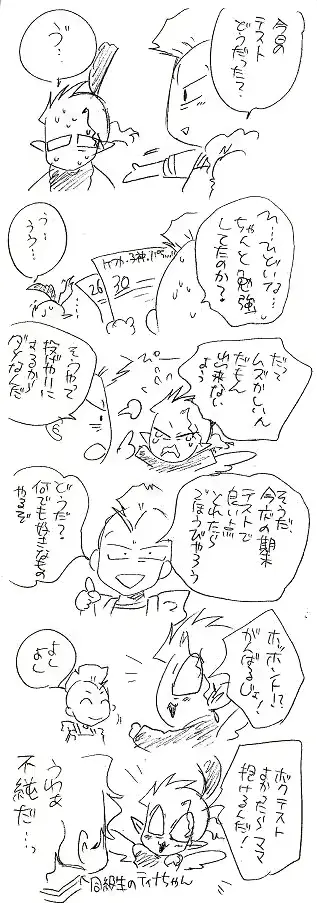 今日の
テスト
どうだった？
う゛…
ひ…ひどいな…
ちゃんと勉強
してたのか？
う…
うう…
26
30
だって
ムズかしいん
だもん
出来ない
よう
そうやって
投げやりに
するから
ダメなんだ
そうだ
今度の期末
テストで
良い点
とれたら
ごほうびやろう
どうだ？
何でも好きなもの
やるぞ
ホッホント!?
がんばるじょ！
よし
よし
ボクテスト
すかったらママ
抱けるんだ！
うわぁ
不純だ…っ
↑同級生のティナちゃん